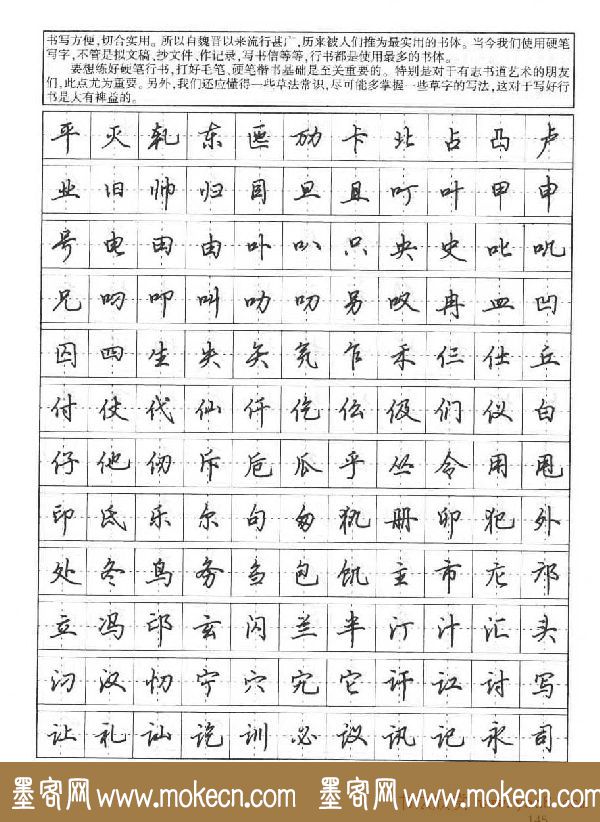 书写方便,切合实用。所以自魏晋以来流行甚广,历来被人们推为最实用的书体。当今我们使用硬笔
写字,不管是拟文稿、抄文件、作记录,写书信等等,行书都是使用最多的书体。
要想练好硬笔行书,打好毛笔、硬笔楷书基础是至关重要的。特别是对于有志书道艺术的朋友
们,此点尤为重要。另外,我们还应懂得一些草法常识,尽可能多掌握一些草字的写法,这对于写好行
书是大有裨益的。
平灭轧东匝劢卡北占凸卢
业旧帅归目旦且叮叶甲申
号电田由卟叭只央史叱叽
兄叼叩叫叻叨另叹冉皿凹
囚四生失矢氕乍禾仨仕丘
付仗代仙仟仡伝伋们仪白
仔他仞斥卮瓜乎丛令用甩
印氐乐尔句匆犰册卯犯外
处冬鸟务刍包饥主市庀邝
立冯邙玄闪兰半汀汁汇头
汈汉忉宁穴宄它讦讧讨写
让礼讪讫训必议讯记永司
墨客网 www.mokecn.com 墨客网 www.mokecn.com
145